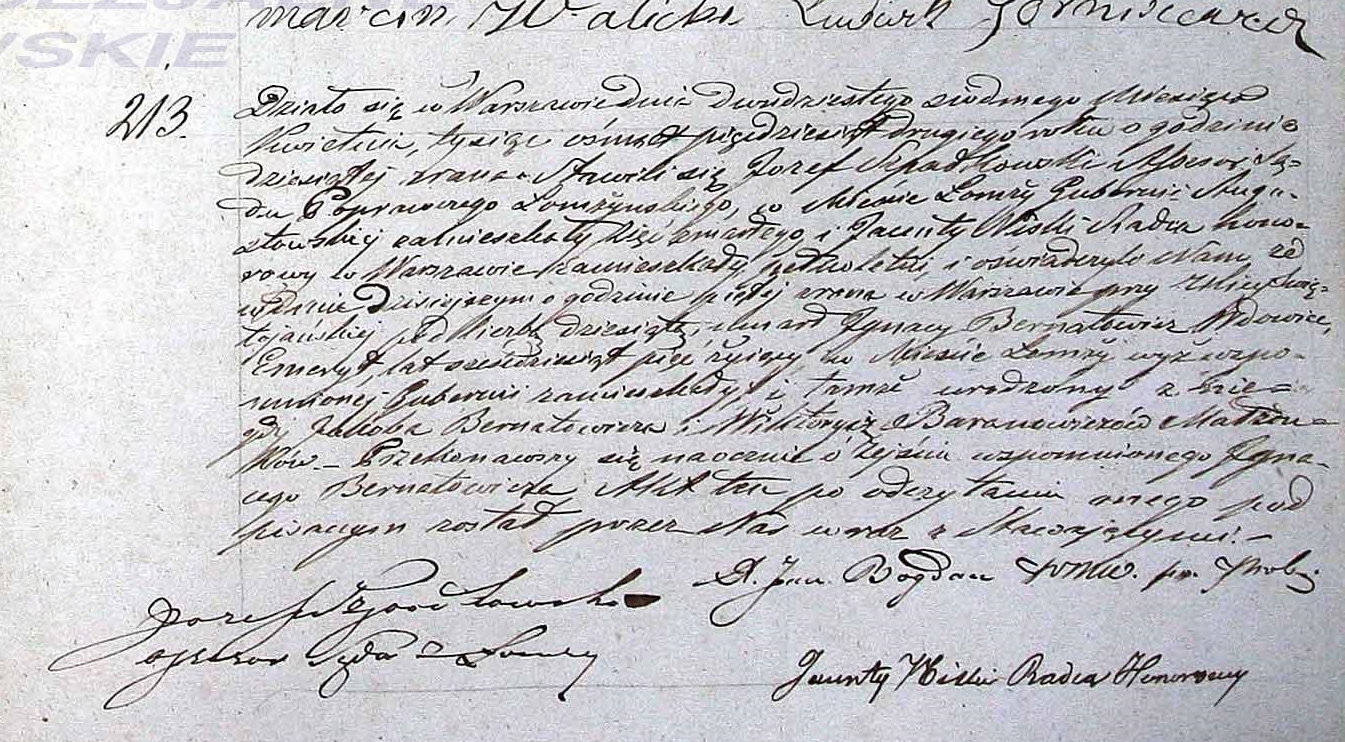 SKIE
Marcin Walicki Ludwik
213.
Działo się w Warszawie dnia dwudziestego siódmego Miesiąca
Kwietnia, tysiąc ośmset pięćdziesiąt drugiego roku o godzinie
dziesiątej zrana. Stawili się Jozef Assesor Są-
du Poprawczego Łomżyńskiego, w Mieście Łomży Gubernii Augu-
stowskiej zamieszkały Zięć zmarłego i Jacenty Wilski Radca hono-
rowy w Warszawie zamieszkały pełnoletni, i oświadczyli Nam, że
w dniu dzisiejszym o godzinie piątej zrana w Warszawie przy Ulicy Święto-
tojańskiej pod liczbą dziesiątą, umarł Ignacy Bernatowicz Wdowiec,
Emeryt, lat sześćdziesiąt pięć żyjący, w Mieście Łomży wyż wspo-
mnionej Gubernii zamieszkały i tamże urodzony z nie-
gdy Jakóba Bernatowicza i Wiktoryi z Baranowiczów Małżon-
ków. — Przekonawszy się naocznie o zejściu wspomnionego Igna-
cego Bernatowicza, Akt ten po odczytaniu onego pod
pisanym został przez Nas wraz z Stawającymi. —
X. Jan Bogdan
Jozef
assesor Sądu z Łomży
Jacenty Wilski Radca Honorowy